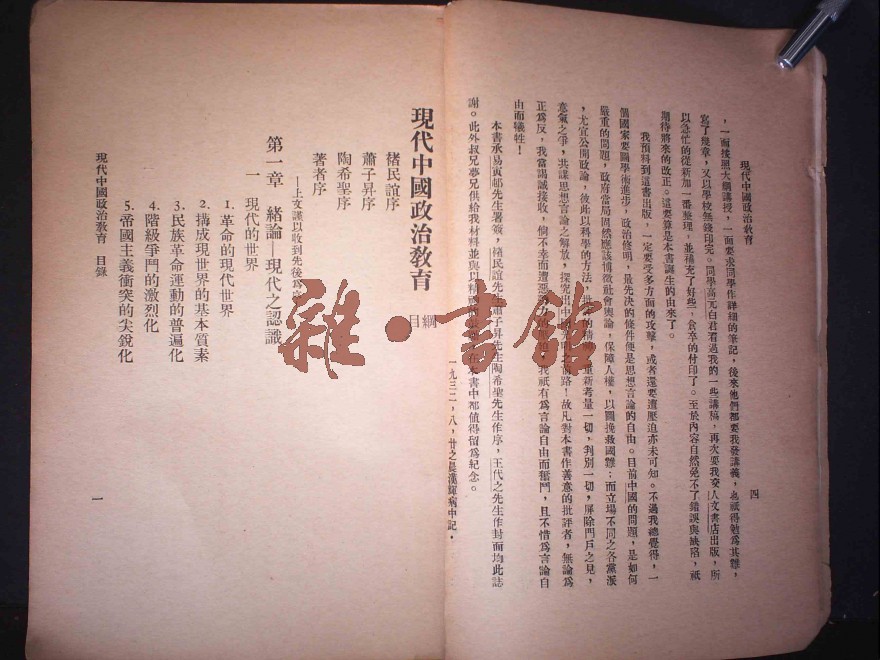 現代中國政治敎育
四
，一面按照大綱講授，一面要求同學作詳細的筆記，後來他們都要我發講義，也祇得勉爲其難，
寫了幾章，又以學校無錢印完。同學高元白君看過我的一些講稿，再次要我交人文書店出版，所
以急忙的從新加一番整理，並補充了好些，倉卒的付印了。至於內容自然免不了錯誤與缺陷，祇
期待將來的改正。這要算是本書誕生的由來了。
我預料到這書出版，一定要受多方面的攻擊，或者還要遭壓迫亦未可知。不過我總覺得，一
個國家要圖學術進步，政治修明，最先決的條件便是思想言論的自由。目前中國的問題，是如何
嚴重的問題，政府當局固然應該博徵社會輿論，保障人權，以圖挽救國難；而立場不同之各黨派
，尤宜公開政論，彼此以科學的方法，批重新考量一切，判別一切，屏除門戶之見，
意氣之爭，共謀思想言論之解放，探究出中路！故凡對本書作善意的批評者，無論爲
正爲反，我當竭誠接收，倘不幸而遭惡我祇有爲言論自由而奮鬥，且不惜爲言論自
由而犧牲！
本書承易寅邨先生署簽，褚民誼先生蕭子昇先生陶希聖先生作序，王代之先生作封面均此誌
謝。此外叔兄夢兄供給我材料並與以精本書中都值得留爲紀念。
一九三二，八，廿之晨漢輝病中記。
現代中國政治敎育
目綱
褚民誼序
蕭子昇序
陶希聖序
著者序
——上文謹以收到先後爲
第一章 緒論—現代之認識
一 現代的世界
1. 革命的現代世界
2. 搆成現世界的基本質素
3. 民族革命運動的普遍化
4. 階級爭鬥的激烈化
5. 帝國主義衝突的尖銳化
現代中國政治敎育 目錄
一
雜·書館